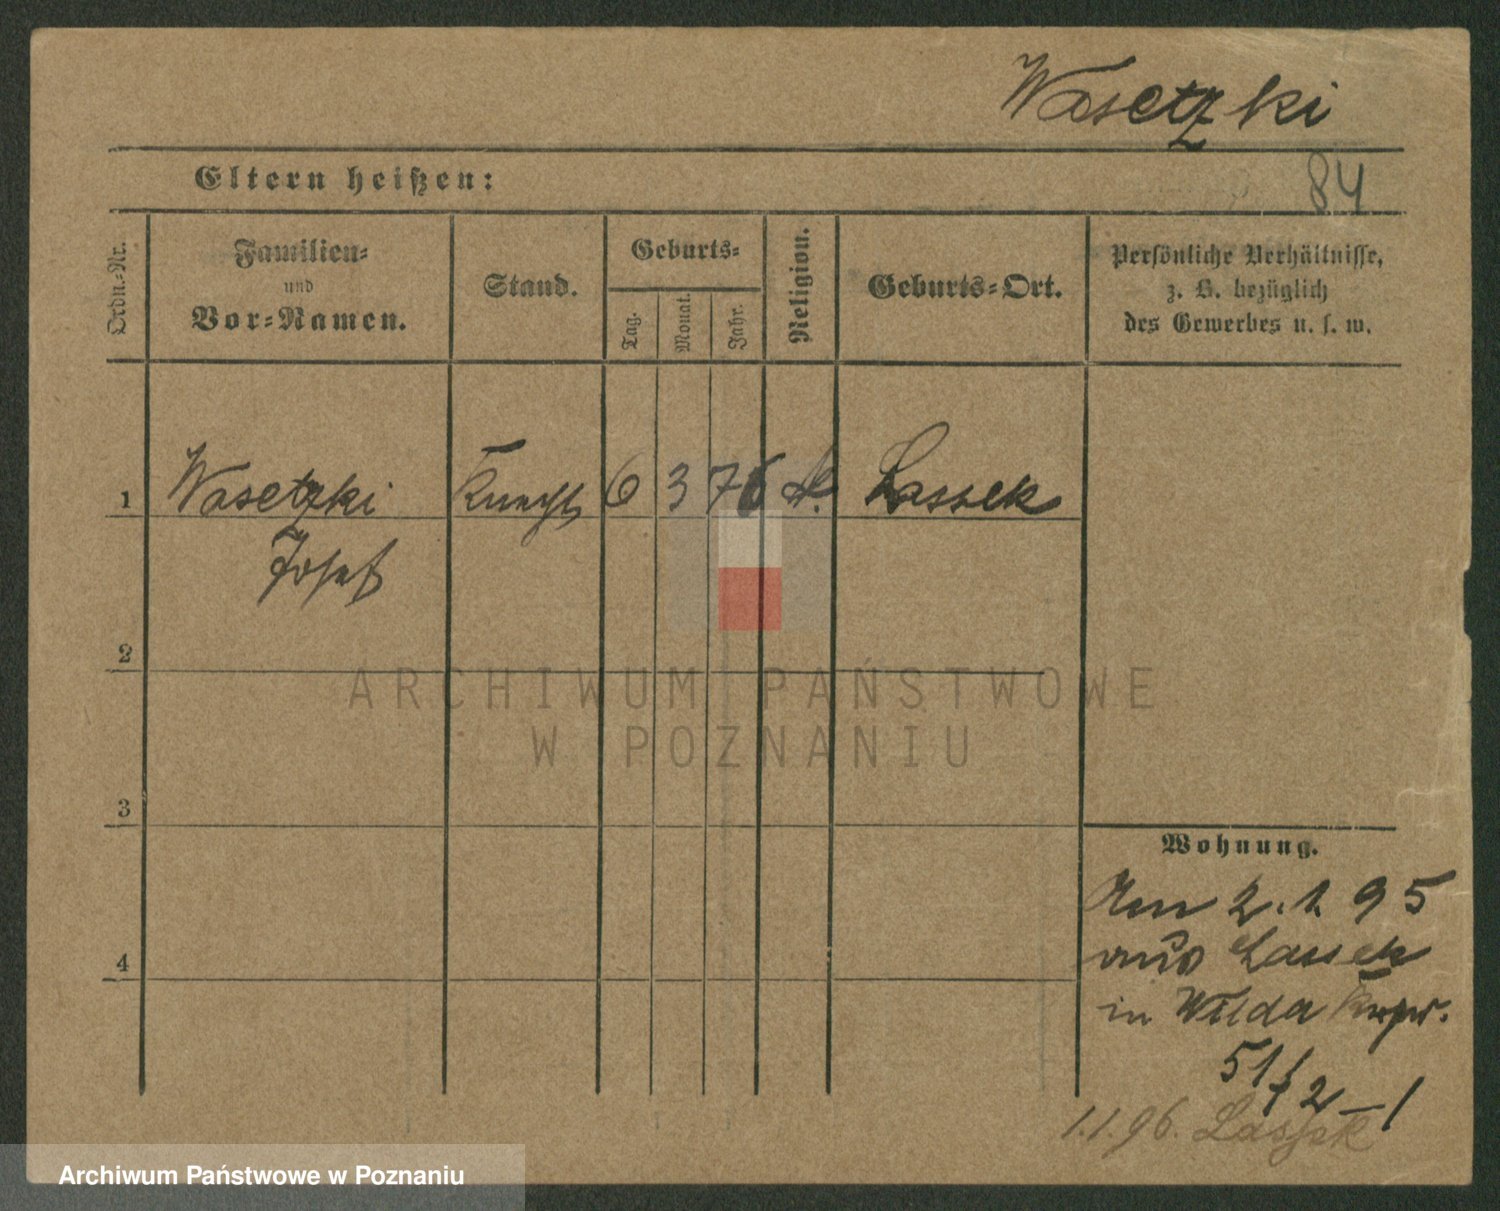 Wasetzki
Eltern heißen:
84
Ordn.-Nr.
Familien-
und
Vor-Namen.
Stand.
Geburts-
Tag.
Monat.
Jahr.
Religion.
Geburts-Ort.
Persönliche Verhältnisse,
z. B. bezüglich
des Gewerbes u. s. w.
1 Wasetzki Knecht 6 3 76 k. Lassek
Josef
2
ARCHIWUM PAŃSTWOWE
W POZNANIU
3
Wohnung.
Am 2.1.95
4
aus Lassek
in Wilda
51/2-1
1.1.96. Lassek
Archiwum Państwowe w Poznaniu